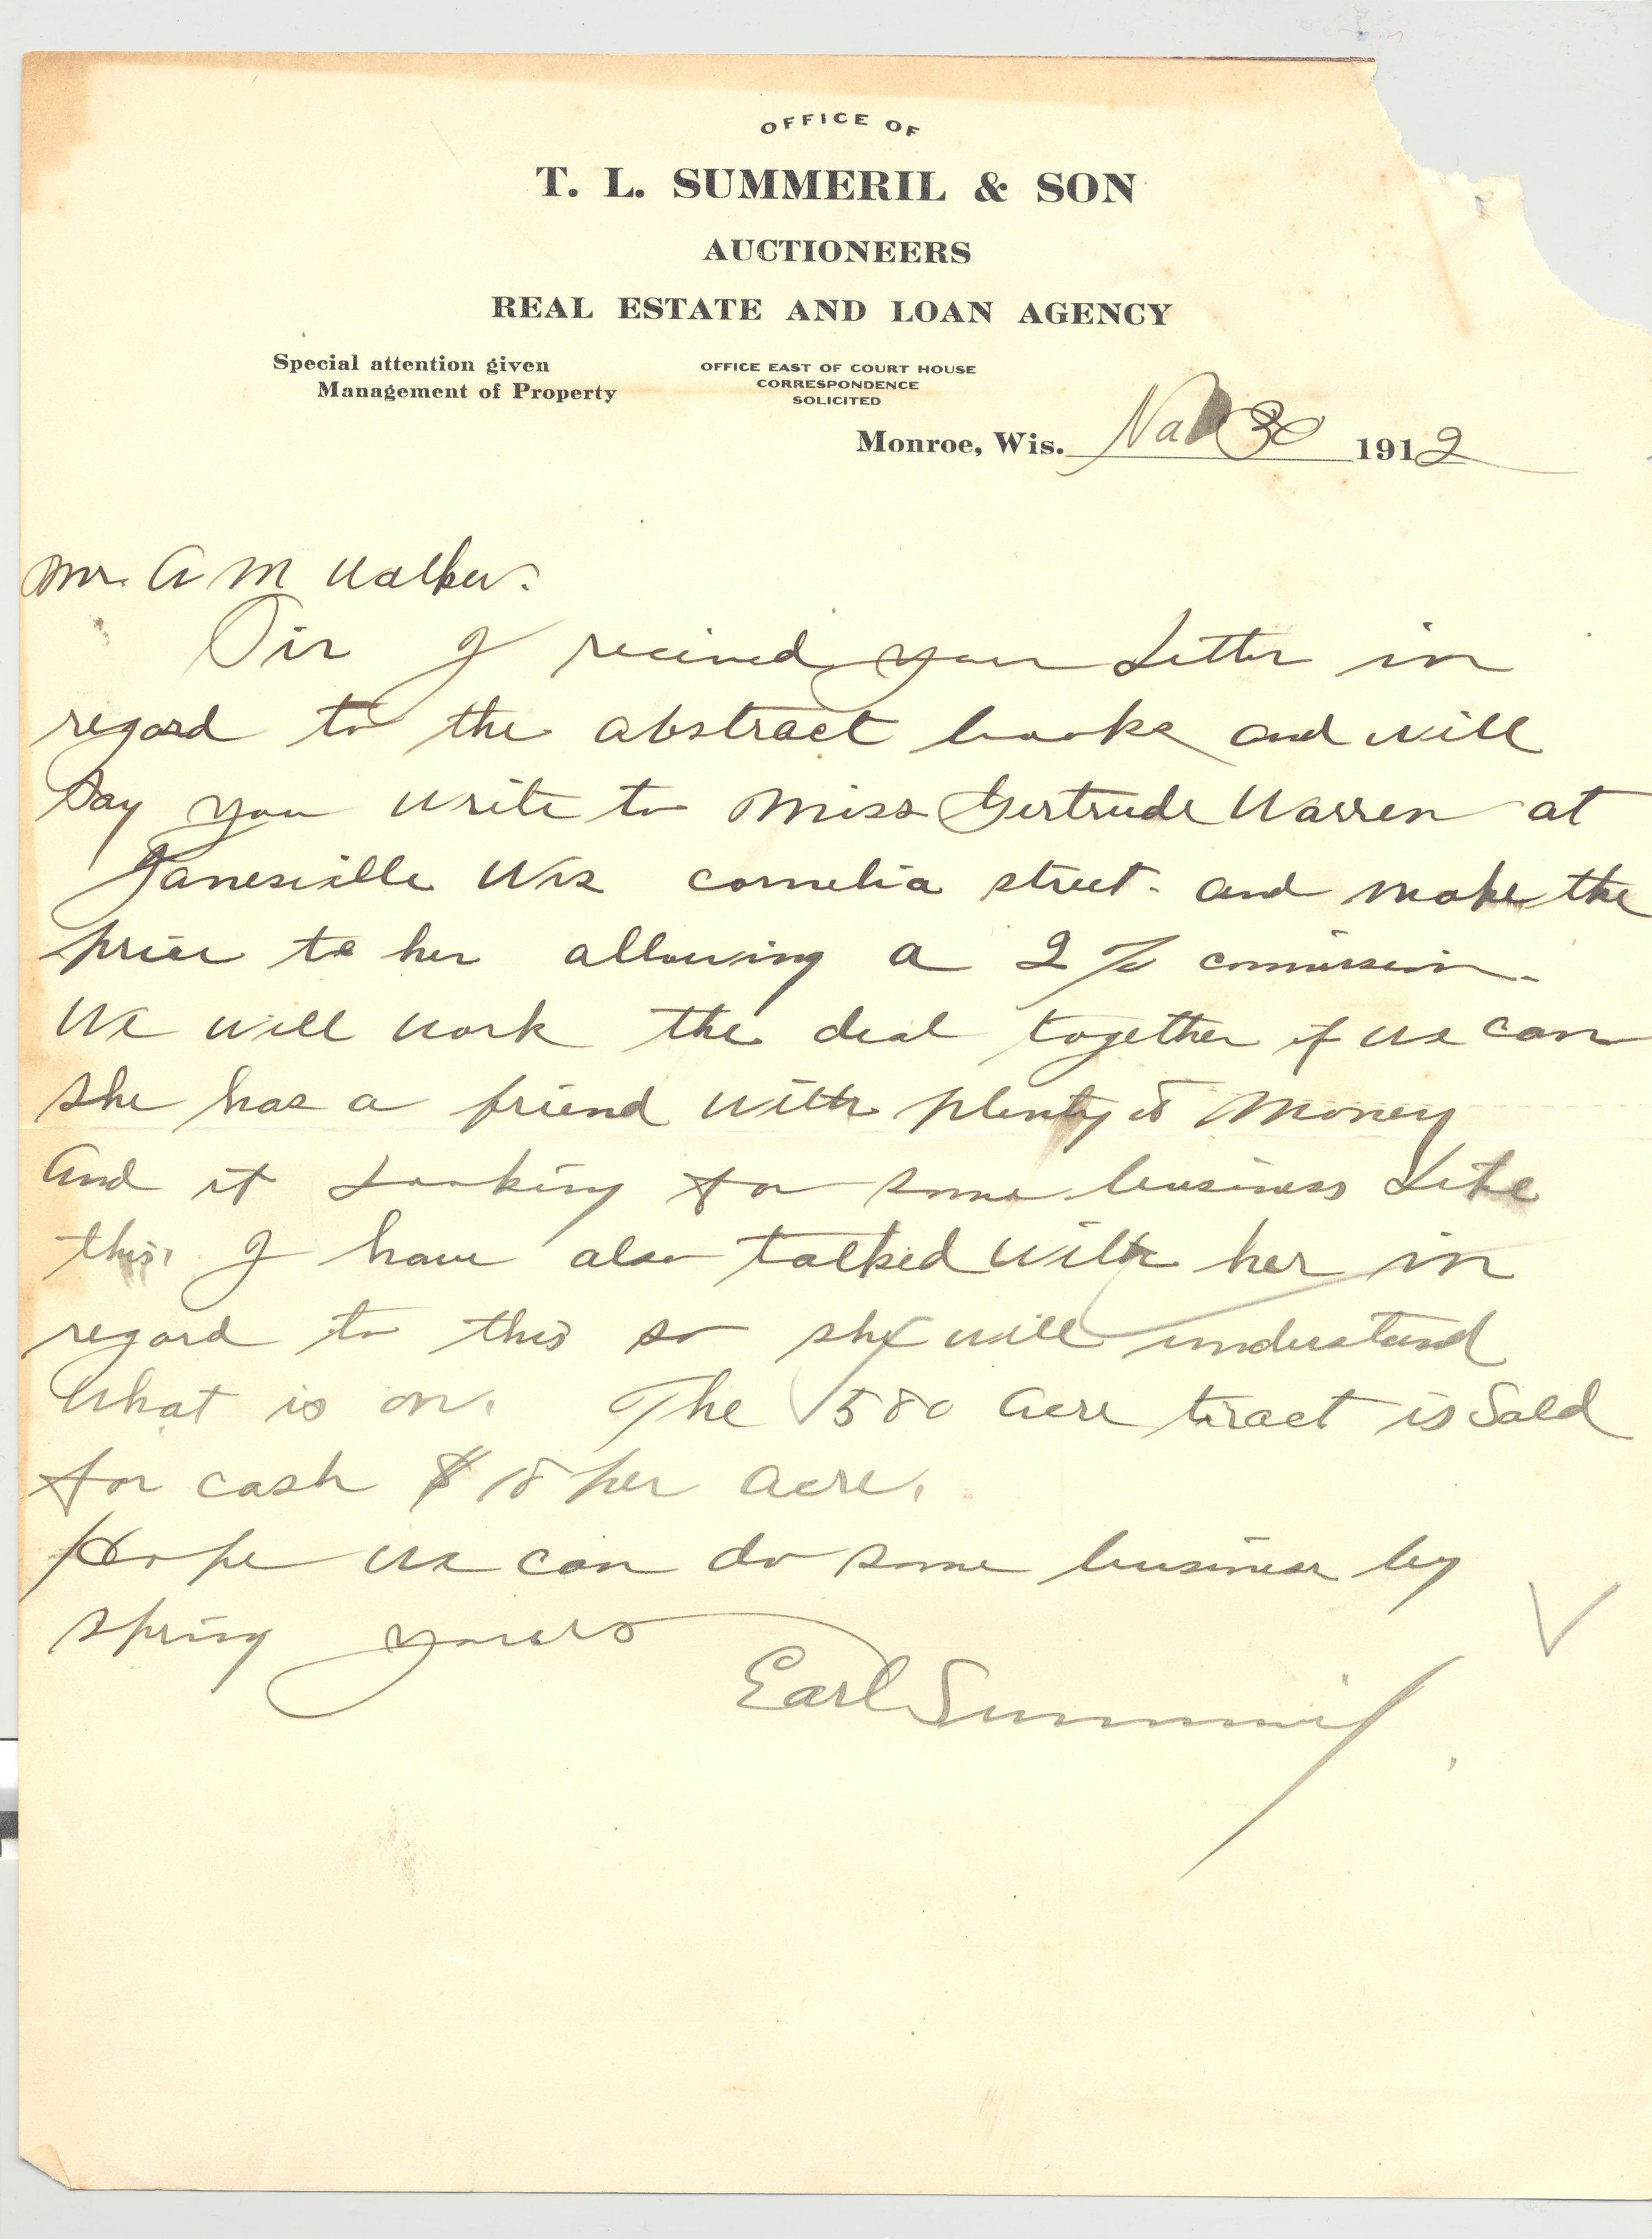 OFFICE OF
T. L. SUMMERIL & SON
AUCTIONEERS
REAL ESTATE AND LOAN AGENCY
Special attention given
Management of Property
OFFICE EAST OF COURT HOUSE
CORRESPONDENCE
SOLICITED
Monroe, Wis. 30 1912
Mr. A M Walker.
Sir I recieved your Letter in
regard to the abstract books and will
Say you write to Miss Gertrude Warren at
Janesville Wis cornelia street. and make the
price to her allowing a 2% comission.
We will work the deal together if we can
she has a friend with plenty of Money
And it Looking for some business Like
this. I have also talked with her in
regard to this so she will understand
what is on. The 580 acre tract is Sold
for cash $18 per acre.
Hope we can do some business by
spring yours
Earl Summeril